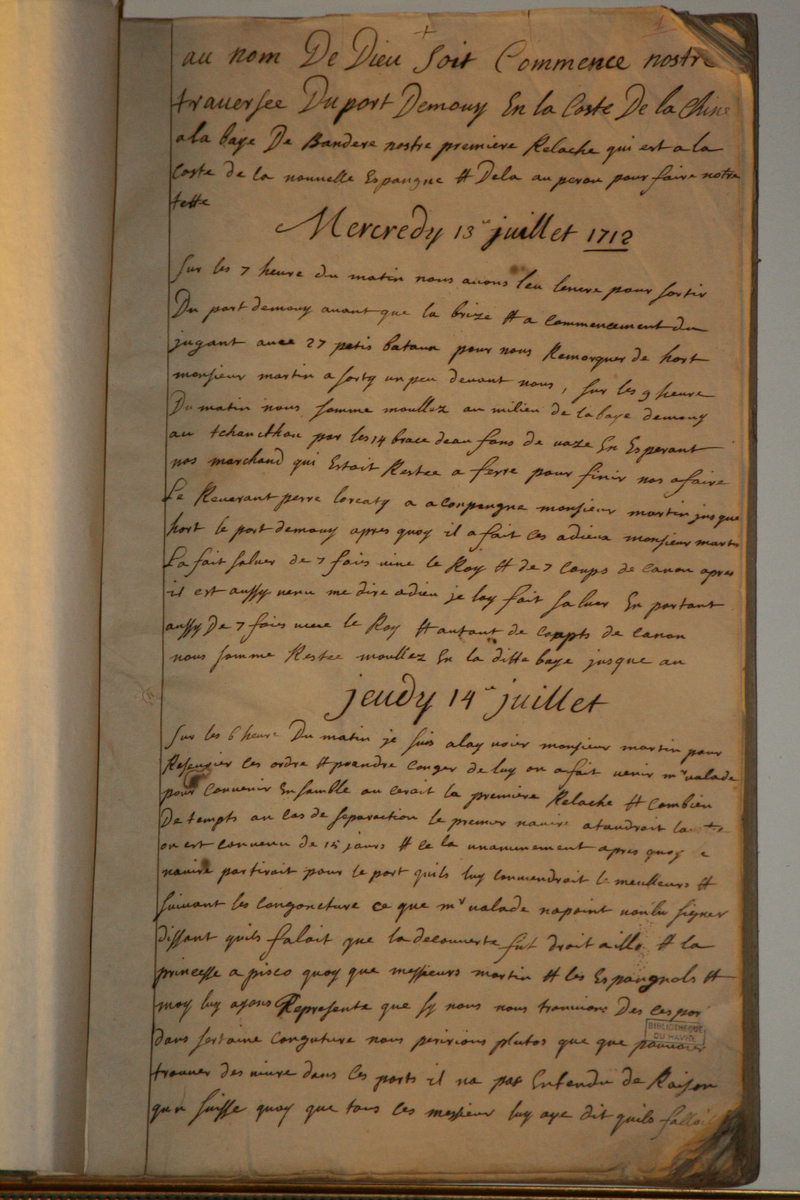 1
au nom De Dieu soit Commence nostre
traversée Du port Demouy En la Coste De la Chine
a la baye De Bandere nostre premiere Relache qui est a la
Coste de la nouvelle Espangne & Dela au perou pour faire notre
Mercredy 13e juillet 1712
sur les 7 heure du matin nous avons leu lencre pour sortir
Du port demouy avant que la brize & a commencement du
jugant avec 27 petis bataux pour nous Remorquer de hort
monsieur martin a sorty un peu devant nous, sur les 9 heure
Du matin nous somme moullez au milieu de la baye demouy
au tchanchou par les 14 brace deau fons de vaze En Esperant
nos marchand qui Estait Restee a terre pour finir nos afaire
Le Reverant perre loreaty a aconpangne monsieur martin jusque
hort le port demouy apres quoy il a fait ces adieux monsieur martin
La fait saluer de 7 fois vive le Roy & de 7 coups de canon apres
il est aussy venu me dire adieu je luy fait saluer En partant
aussy De 7 foies vive le Roy & autant de coupts de canon
nous somme Restee moullez En la ditte baye jusque au
jeudy 14e juillet
sur les 6 heure Du matin je suis alay voier monsieur martin pour
ces ordre & prandre conger de luy on a fait venir mr valade
pour convenir Ensamble ou cerait la premiere Relache & Combien
De tempts au cas de separaction le premier navire atandroit la
on est convenu de 15 jours & ce la unanimement apres quoy
navire partiroit pour le port quils luy conviendroit le meulleurs &
suivant les congoncture ce que mr valade napoint voulu signer
dissant quils falait que la decouverte fut droit a illo & la
princesse a pisco quoy que messieurs martin & les Espangnols &
moy luy ayons Representé que sy nous nous trouvions Des
dans sertaine conguture nous peririons plutos que que
trouver des vivre dans ces ports il na pas Entendu de Raison
quoy que tous ces messieur luy aye dit quils fallait
BIBLIOTHEQUE
DU HAVRE